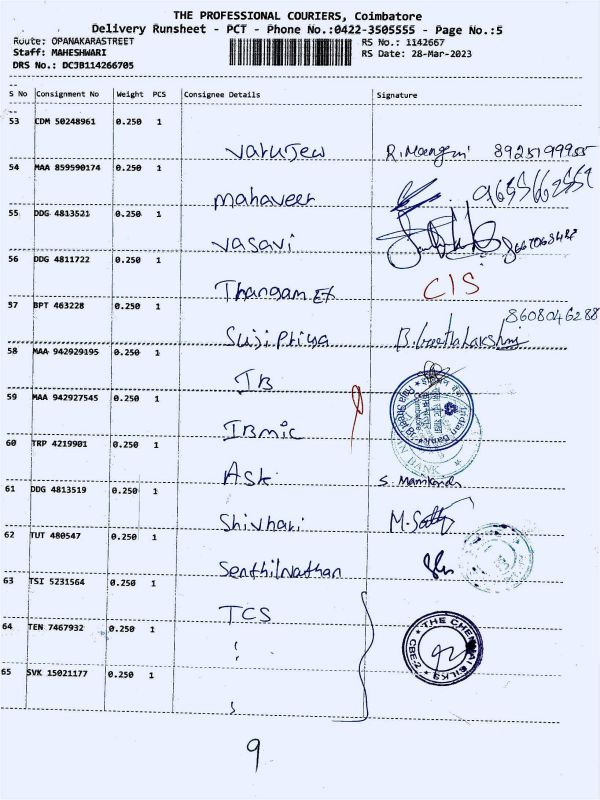 THE PROFESSIONAL COURIERS, Coimbatore
Delivery Runsheet - PCT - Phone No.:0422-3505555 - Page No.:5
Route: OPANAKARASTREET RS No.: 1142667
Staff: MAHESHWARI RS Date: 28-Mar-2023
DRS No.: DCJB114266705
S No Consignment No Weight PCS Consignee Details Signature
53 CDM 50248961 0.250 1
Varujew 8925199955
54 MAA 859590174 0.250 1
Mahaveer
55 DDG 4813521 0.250 1
Vasavi
56 DDG 4811722 0.250 1
Thangam Ex CIS
57 BPT 463228 0.250 1 8608046288
Sujipriya
58 MAA 942929195 0.250 1
IB
59 MAA 942927545 0.250 1
IBmic
60 TRP 4219901 0.250 1
Ask
61 DDG 4813519 0.250 1
Shivhari
62 TUT 480547 0.250 1
Senthilnathan
63 TSI 5231564 0.250 1
TCS
64 TEN 7467932 0.250 1 THE CHENNAI SILKS CBE-2
65 SVK 15021177 0.250 1
9